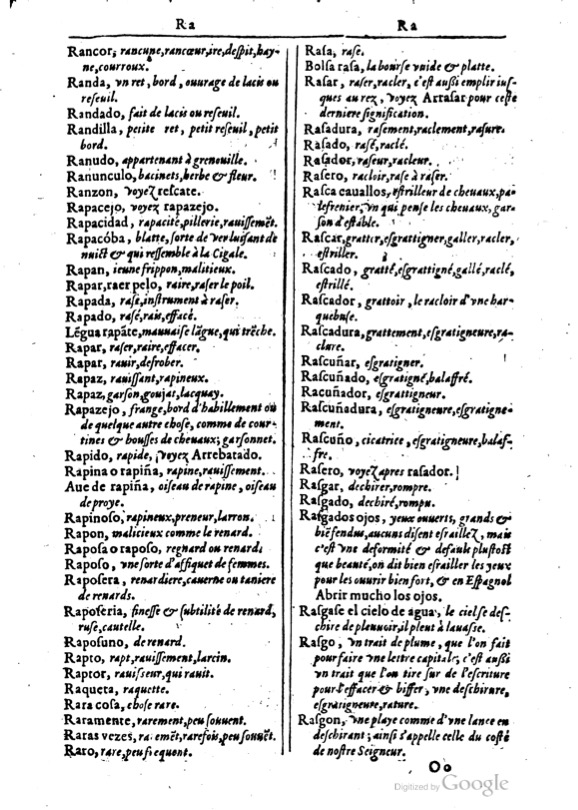 Ra
Rancor, rancune, rancœur, ire, despit, hay-
ne, courroux.
Randa, vn ret, bord, ouurage de lacis ou
reseuil.
Randado, fait de lacis ou reseuil.
Randilla, petite ret, petit reseuil, petit
bord.
Ranudo, appartenant à grenouille.
Ranunculo, bacinets, herbe & fleur.
Ranzon, voyez rescate.
Rapacejo, voyez rapazejo.
Rapacidad, rapacité, pillerie, rauissemẽt.
Rapacóba, blatte, sorte de ver luisant de
nuict & qui ressemble à la Cigale.
Rapan, ieune frippon, malitieux.
Rapar, raer pelo, raire, raser le poil.
Rapada, rase, instrument à raser.
Rapado, rasé, rais, effacé.
Lẽgua rapãte, mauuaise lãgue, qui trẽche.
Rapar, raser, raire, effacer.
Rapar, rauir, desrober.
Rapaz, rauissant, rapineux.
Rapaz, garson, goujat, lacquay.
Rapazejo, frange, bord d'habillement ou
de quelque autre chose, comme de cour-
tines & housses de cheuaux; garsonnet.
Rapido, rapide, voyez Arrebatado.
Rapina o rapiña, rapine, rauissement.
Aue de rapiña, oiseau de rapine, oiseau
de proye.
Rapinoso, rapineux, preneur, larron.
Rapon, malicieux comme le renard.
Raposa o raposo, regnard ou renard.
Raposo, vne sorte d'affiquet de femmes.
Raposera, renardiere, cauerne ou taniere
de renards.
Raposeria, finesse & subtilité de renard,
ruse, cautelle.
Raposuno, de renard.
Rapto, rapt, rauissement, larcin.
Raptor, rauisseur, qui rauit.
Raqueta, raquette.
Rara cosa, chose rare.
Raramente, rarement, peu souuent.
Raras vezes, raremẽt, rarefois, peu souuẽt.
Raro, rare, peu frequent.
Ra
Rasa, rase.
Bolsa rasa, la bourse vuide & platte.
Rasar, raser, racler, c'est aussi emplir ius-
ques au rez, voyez Arrasar pour ceste
derniere signification.
Rasadura, rasement, raclement, rasure.
Rasado, rasé, raclé.
Rasador, raseur, racleur.
Rasero, racloir, rase à raser.
Rasca cauallos, estrilleur de cheuaux, pa-
lefrenier, vn qui pense les cheuaux, gar-
son d'estable.
Rascar, gratter, esgrattigner, galler, racler,
estriller.
Rascado, gratté, esgrattigné, gallé, raclé,
estrillé.
Rascador, grattoir, le racloir d'vne har-
quebuse.
Rascadura, grattement, esgratigneure, ra-
clure.
Rascuñar, esgratigner.
Rascuñado, esgratigné, balaffré.
Racuñador, esgrattigneur.
Rascuñadura, esgratigneure, esgratigne-
ment.
Rascuño, cicatrice, esgratigneure, balaf-
fre.
Rasero, voyez apres rasador.
Rasgar, deschirer, rompre.
Rasgado, dechiré, rompu.
Rasgados ojos, yeux ouuerts, grands &
biẽ fendus, aucuns disent esraillez, mais
c'est vne deformité & default plustost
que beauté, on dit bien esrailler les yeux
pour les ouurir bien fort, & en Espagnol
Abrir mucho los ojos.
Rasgase el cielo de agua, le ciel se des-
chire de pleuuoir, il pleut à lauasse.
Rasgo, vn trait de plume, que l'on fait
pour faire vne lettre capitale, c'est aussi
vn trait que l'on tire sur de l'escriture
pour l'effacer & biffer, vne deschirure,
esgratigneure, rature.
Rasgon, vne playe comme d'vne lance en
deschirant; ainsi s'appelle celle du costé
de nostre Seigneur.
Oo
Digitized by Google